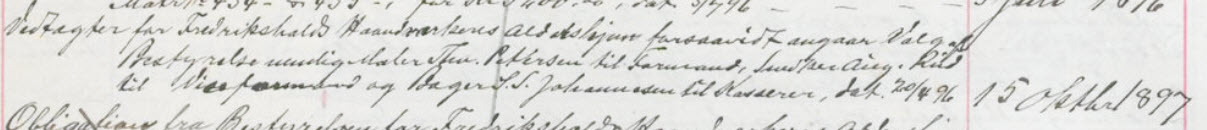 Matr. № 434 - & 435 -, for Kr 3400.00, dat. 3/7 96 — — — 3 Juli 1896
Vedtægter for Fredrikshalds Haandværkeres Alderdshjem forsaavidt angaar Valg af
Bestyrelse nemlig Maler Thv. Petersen til Formand, Snedker Aug. Rud
til Viceformand og Bager S. S. Johannesen til Kasserer, dat. 20/4 96 15 Oktbr 1897
Obligation fra Bestyrelsen for Fredrikshalds